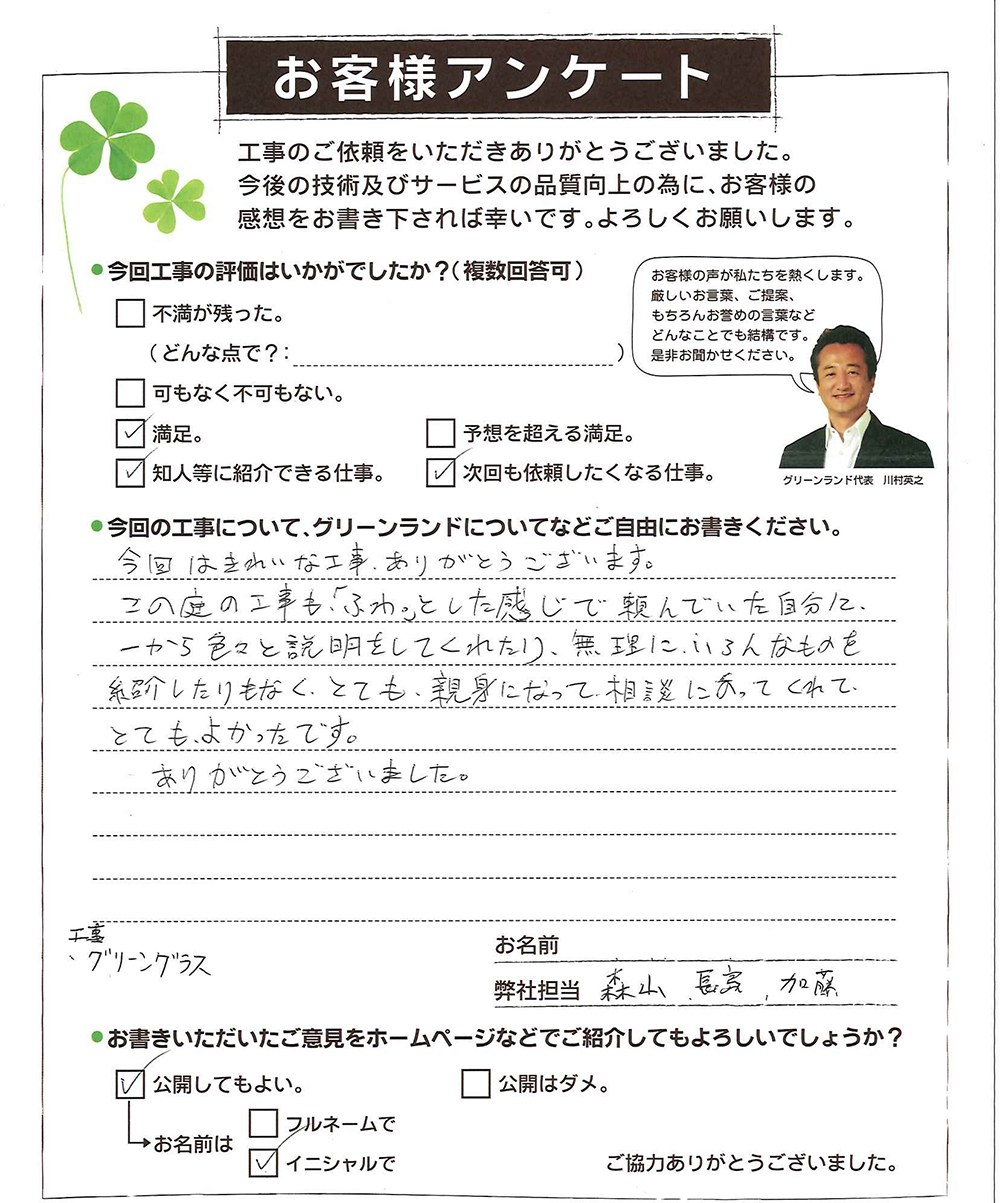 お客様アンケート
工事のご依頼をいただきありがとうございました。
今後の技術及びサービスの品質向上の為に、お客様の
感想をお書き下されば幸いです。よろしくお願いします。
今回工事の評価はいかがでしたか？（複数回答可）
不満が残った。
（どんな点で？： ）
可もなく不可もない。
満足。 予想を超える満足。
知人等に紹介できる仕事。 次回も依頼したくなる仕事。
お客様の声が私たちを熱くします。
厳しいお言葉、ご提案、
もちろんお誉めの言葉など
どんなことでも結構です。
是非お聞かせください。
グリーンランド代表 川村英之
今回の工事について、グリーンランドについてなどご自由にお書きください。
今回はきれいな工事、ありがとうございます。
この庭の工事も、「ふわ。」とした感じで頼んでいた自分に、
一から色々と説明をしてくれたり、無理に、いろんなものを
紹介したりもなく、とても、親身になって、相談にのってくれて、
とても、よかったです。
ありがとうございました。
工事
、グリーングラス
お名前
弊社担当 森山 長亮 加藤
お書きいただいたご意見をホームページなどでご紹介してもよろしいでしょうか？
公開してもよい。 公開はダメ。
お名前は
フルネームで
イニシャルで
ご協力ありがとうございました。